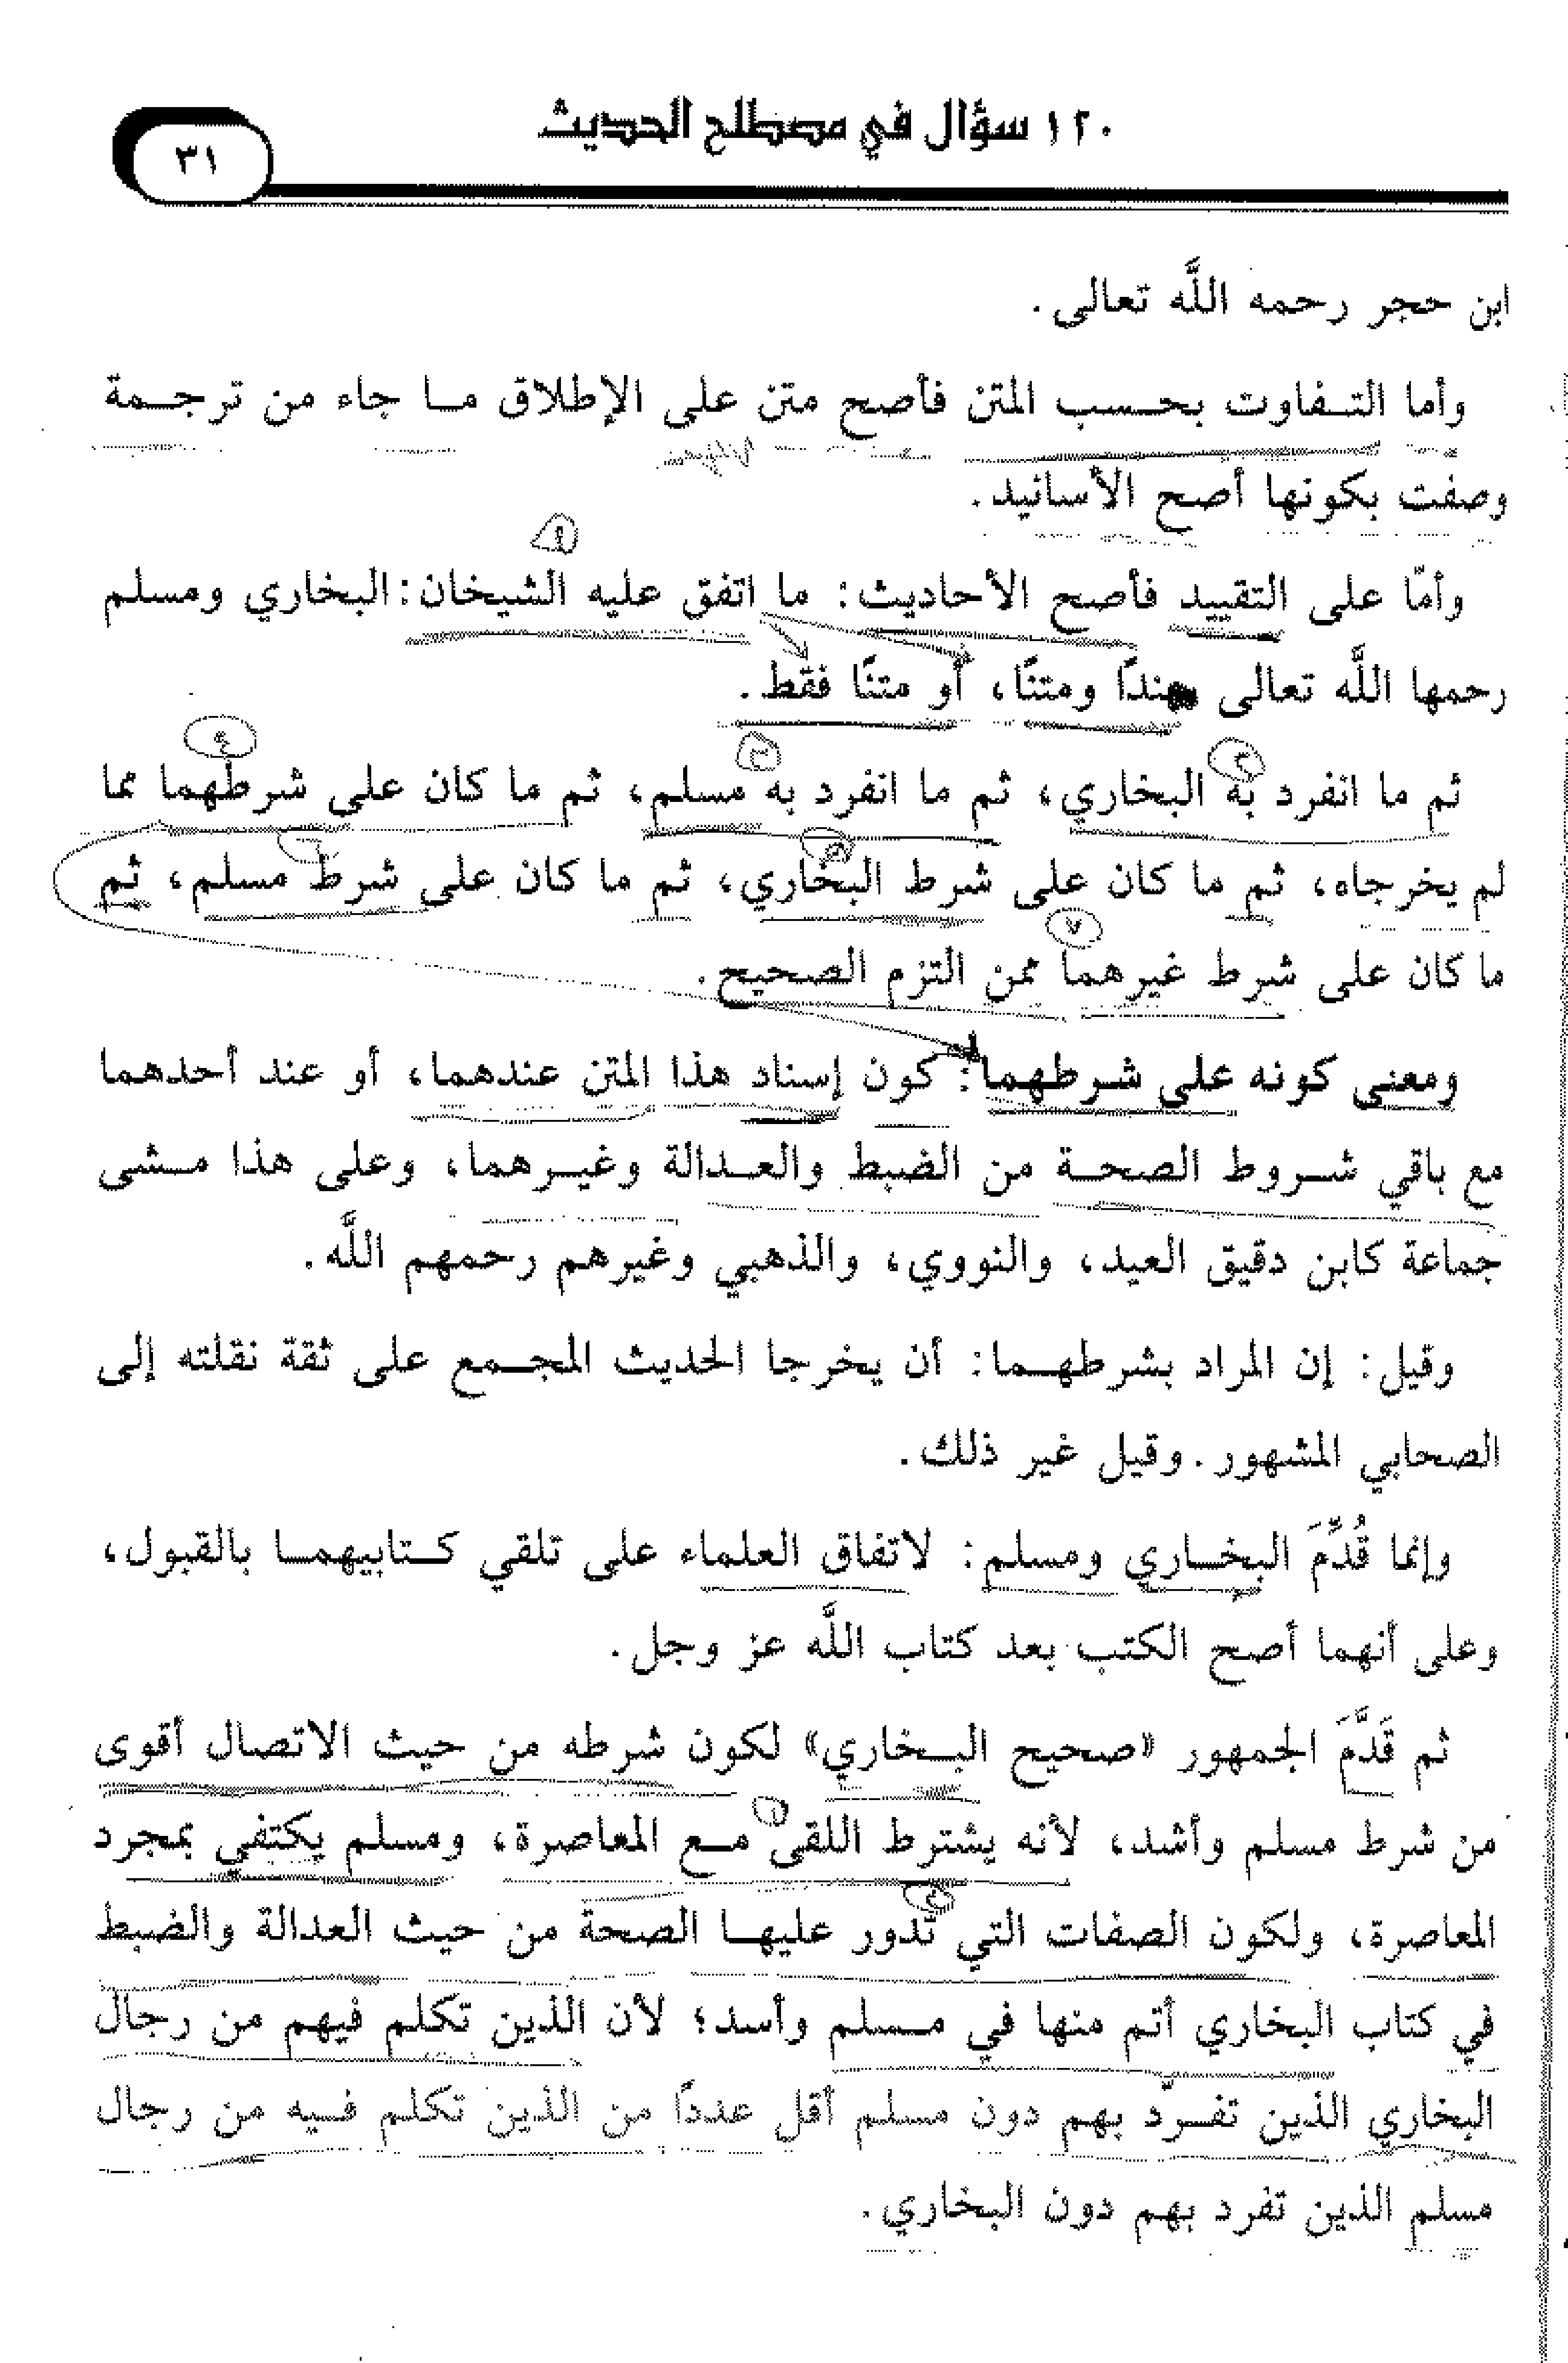 ١٢٠ سؤال في مصطلح الحديث
٣١
ابن حجر رحمه اللَّه تعالى.
وأما التـفاوت بحـسب المتن فأصح متن على الإطلاق مـا جاء من ترجـمة
وصفت بكونها أصح الأسانيد.
وأمّا على التقييد فأصح الأحاديث: ما اتفق عليه الشيخان: البخاري ومسلم
رحمها اللَّه تعالى سندًا ومتنًا، أو متنًا فقط.
ثم ما انفرد به البخاري، ثم ما انفرد به مسلم، ثم ما كان على شرطهما مما
لم يخرجاه، ثم ما كان على شرط البخاري، ثم ما كان على شرط مسلم، ثم
ما كان على شرط غيرهما ممن التزم الصحيح.
ومعنى كونه على شـرطهما: كون إسناد هذا المتن عندهما، أو عند أحدهما
مع باقي شـروط الصحـة من الضبط والعـدالة وغيـرهما، وعلى هذا مـشى
جماعة كابن دقيق العيد، والنووي، والذهبي وغيرهم رحمهم اللَّه.
وقيل: إن المراد بشرطهـما: أن يخرجا الحديث المجـمع على ثقة نقلته إلى
الصحابي المشهور. وقيل غير ذلك.
وإنما قُدِّمَ البخـاري ومسلم: لاتفاق العلماء على تلقي كـتابيهمـا بالقبول،
وعلى أنهما أصح الكتب بعد كتاب اللَّه عز وجل.
ثم قَدَّمَ الجمهور «صحيح البـخاري» لكون شرطه من حيث الاتصال أقوى
من شرط مسلم وأشد، لأنه يشترط اللقى مـع المعاصرة، ومسلم يكتفي بمجرد
المعاصرة، ولكون الصفات التي تدور عليهـا الصحة من حيث العدالة والضبط
في كتاب البخاري أتم منها في مـسلم وأسد؛ لأن الذين تكلم فيهم من رجال
البخاري الذين تفـرّد بهم دون مسلم أقل عددًا من الذين تكلم فـيه من رجال
مسلم الذين تفرد بهم دون البخاري.